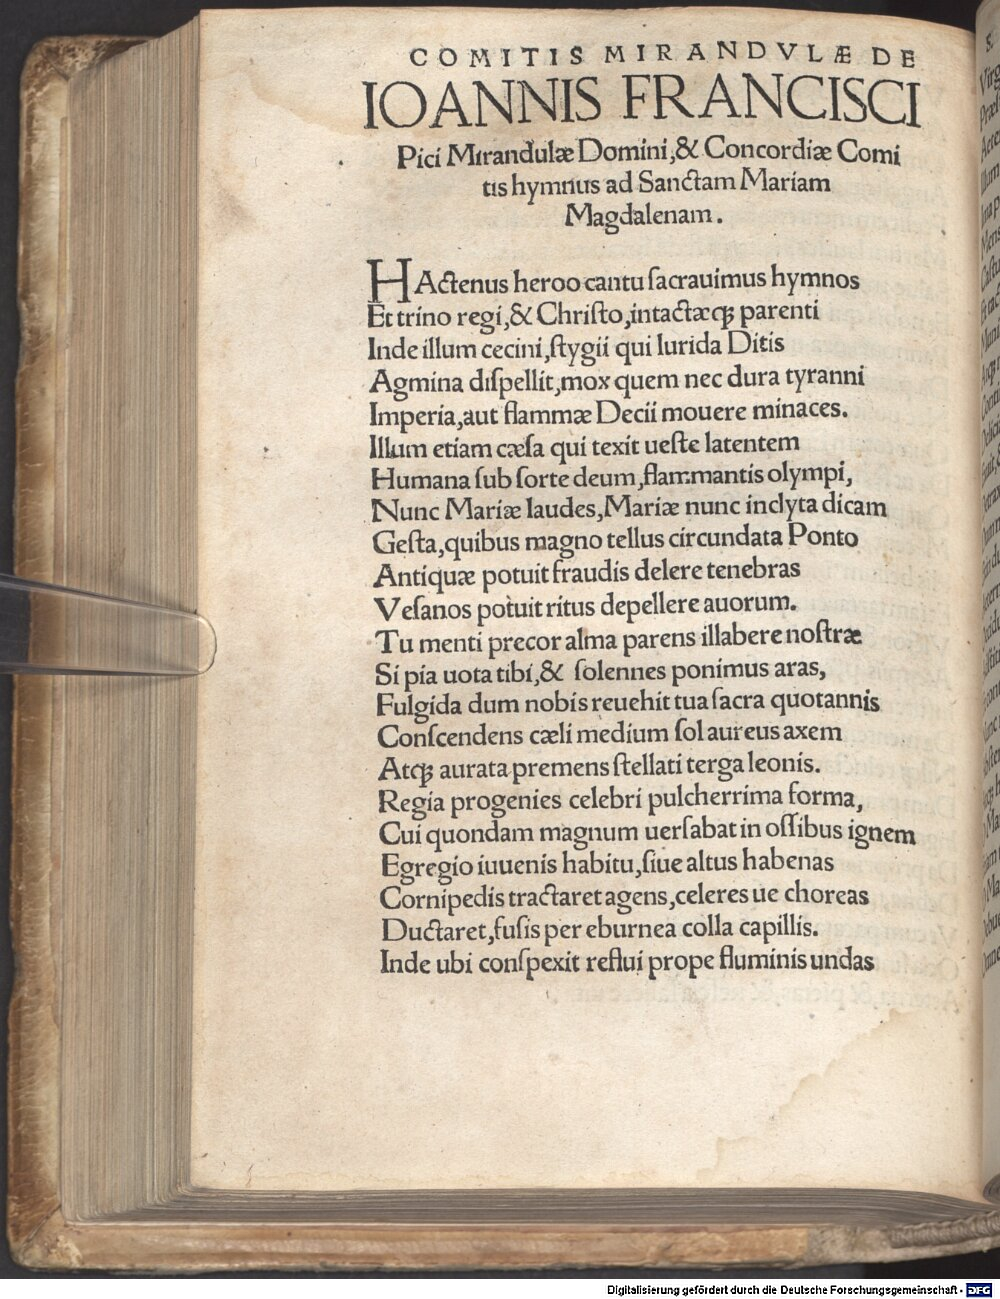 COMITIS MIRANDVLÆ DE
IOANNIS FRANCISCI
Pici Mirandulæ Domini,& Concordiæ Comi
tis hymnus ad Sanctam Mariam
Magdalenam.
HActenus heroo cantu ſacrauimus hymnos
Et trino regi,& Chriſto,intactæqꝫ parenti
Inde illum cecini,ſtygii qui lurida Ditis
Agmina diſpellit,mox quem nec dura tyranni
Imperia,aut flammæ Decii mouere minaces.
Illum etiam cæſa qui texit ueſte latentem
Humana ſub ſorte deum,flammantis olympi,
Nunc Mariæ laudes,Mariæ nunc inclyta dicam
Geſta,quibus magno tellus circundata Ponto
Antiquæ potuit fraudis delere tenebras
Veſanos potuit ritus depellere auorum.
Tu menti precor alma parens illabere noſtræ
Si pia uota tibi,& ſolennes ponimus aras,
Fulgida dum nobis reuehit tua ſacra quotannis
Conſcendens cæli medium ſol aureus axem
Atqꝫ aurata premens ſtellati terga leonis.
Regia progenies celebri pulcherrima forma,
Cui quondam magnum uerſabat in oſſibus ignem
Egregio iuuenis habitu,ſiue altus habenas
Cornipedis tractaret agens,celeres ue choreas
Ductaret,fuſis per eburnea colla capillis.
Inde ubi conſpexit reflui prope fluminis undas
Digitalisierung gefördert durch die Deutsche Forschungsgemeinschaft - DFG